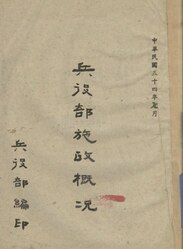 中華民國三十四年七月
兵役部施政概況
兵役部編印